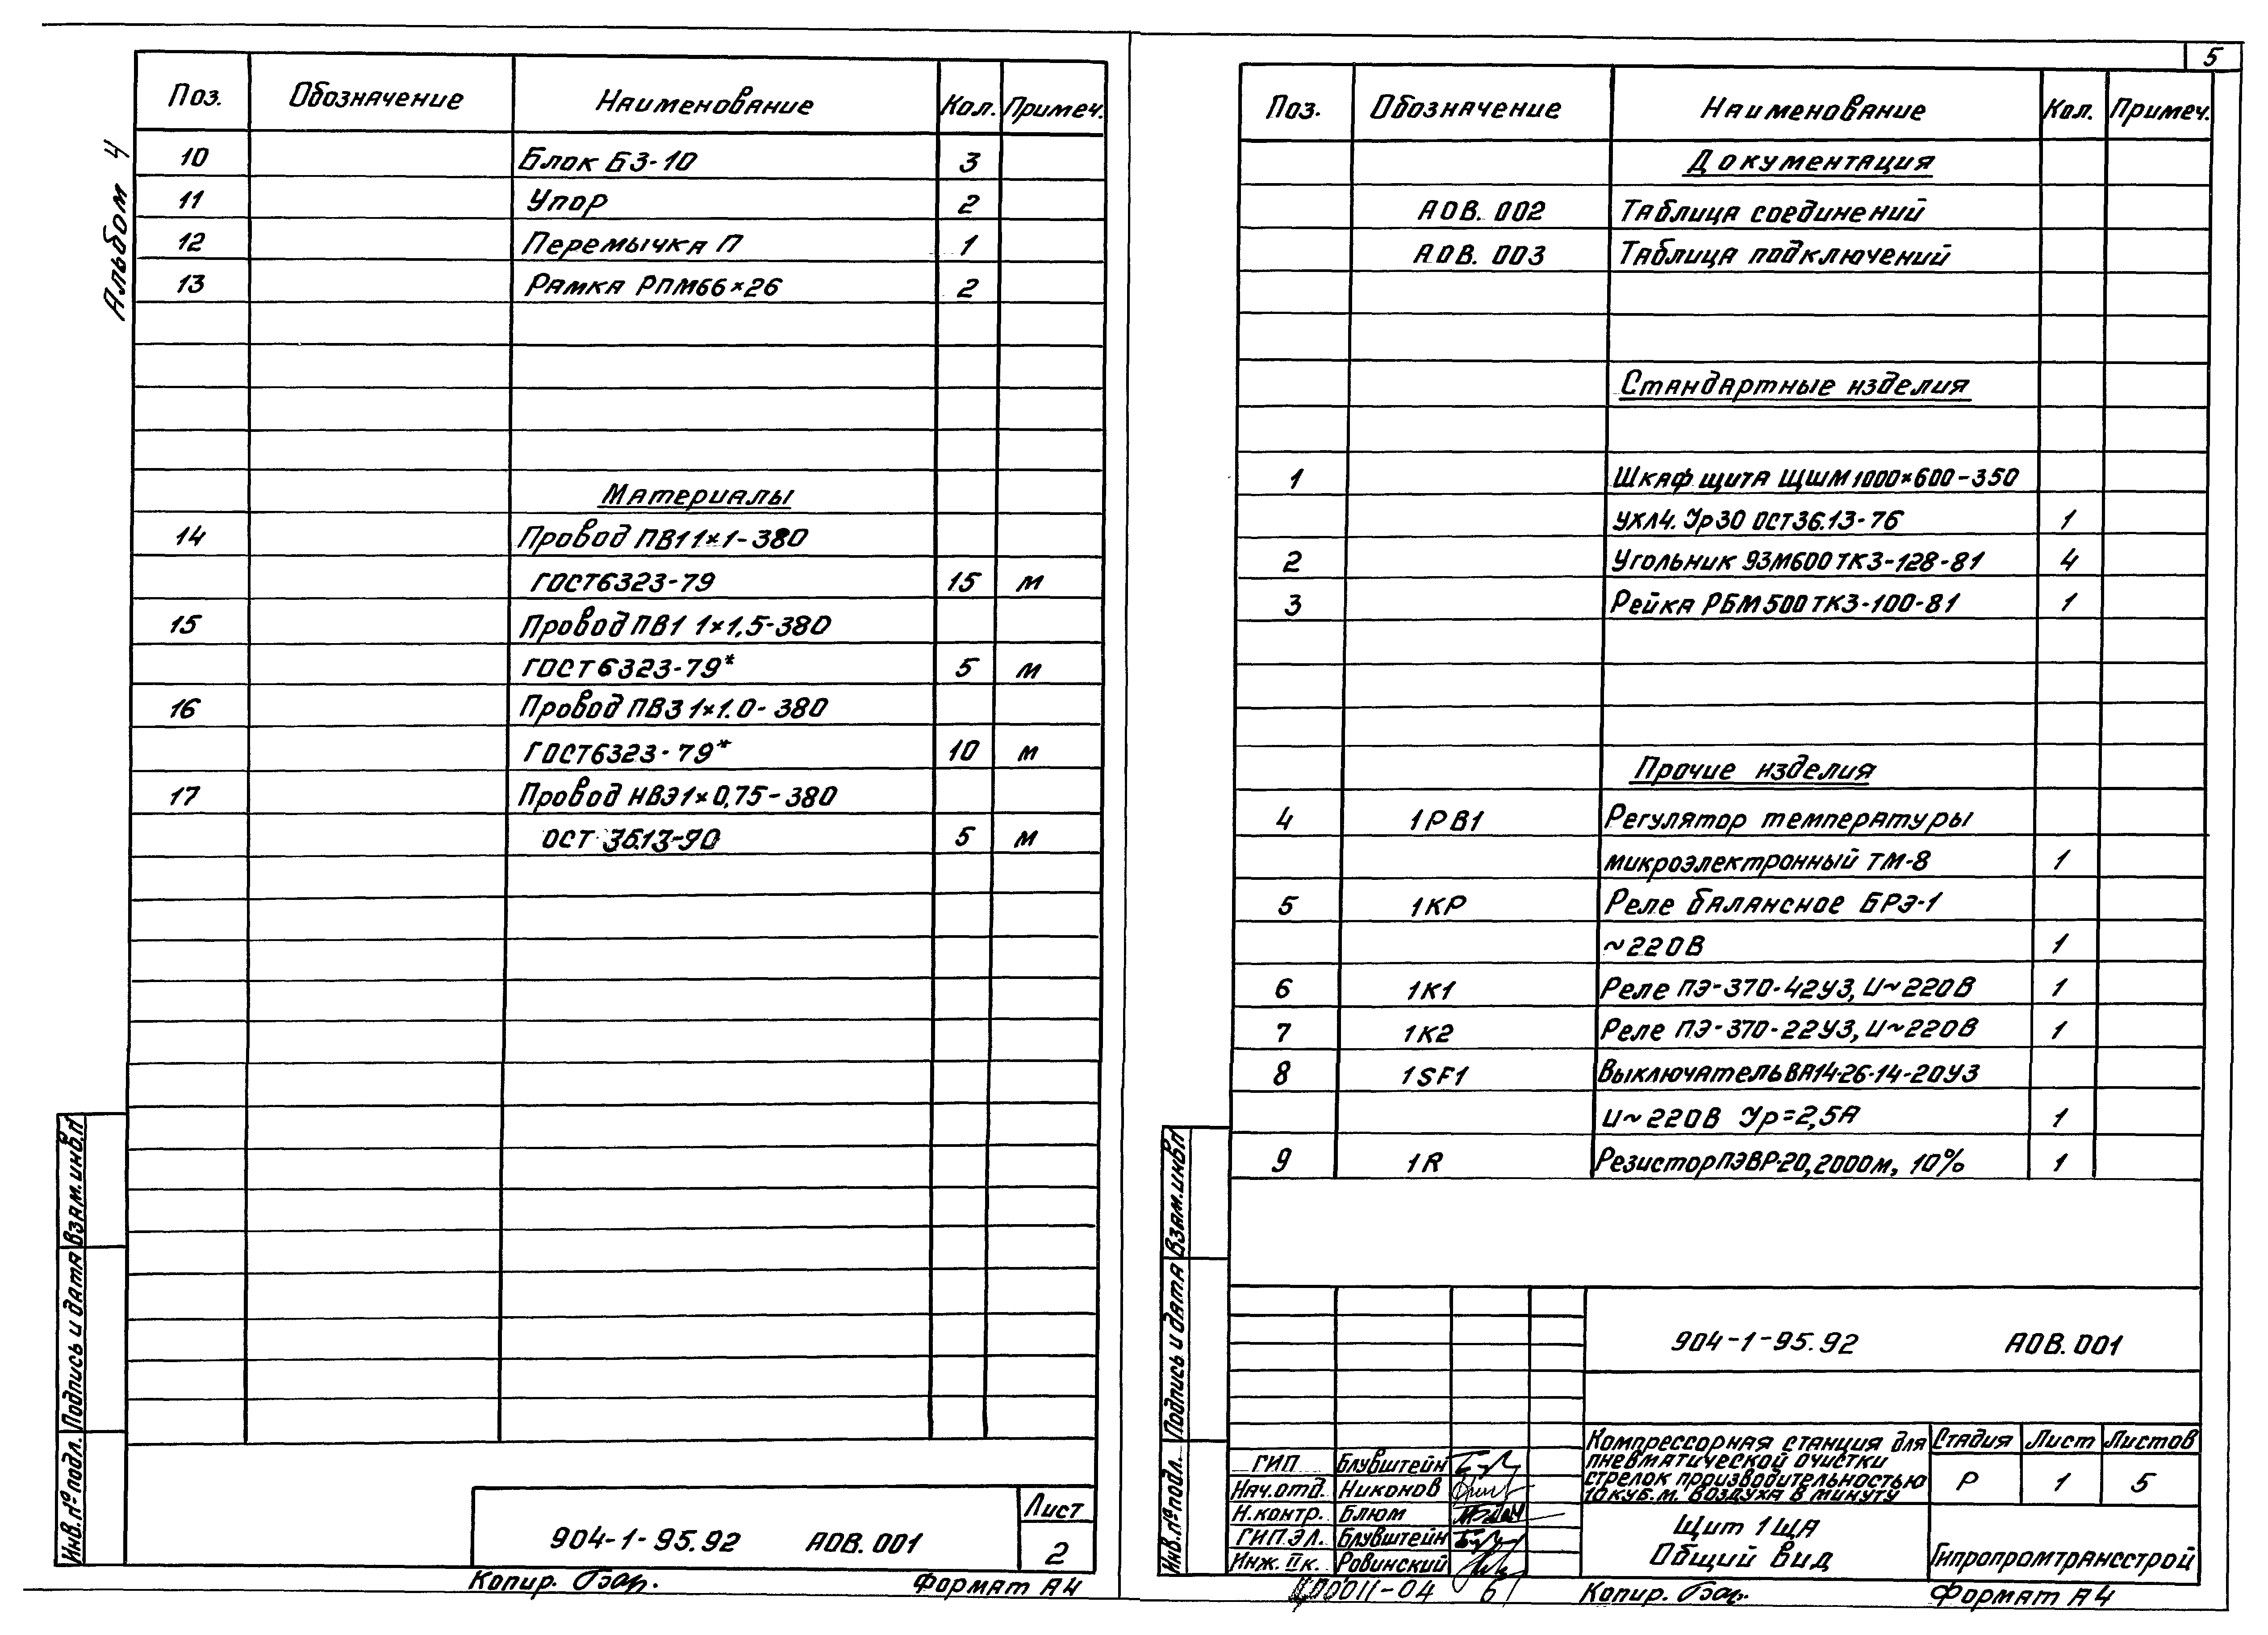 Альбом 4
Поз. Обозначение Наименование Кол. Примеч.
10 Блок БЗ-10 3
11 Упор 2
12 Перемычка П 1
13 Рамка РПМ66×26 2
Материалы
14 Провод ПВ1 1×1-380
ГОСТ6323-79 15 м
15 Провод ПВ1 1×1,5-380
ГОСТ6323-79* 5 м
16 Провод ПВ3 1×1.0-380
ГОСТ6323-79* 10 м
17 Провод НВЭ1×0,75-380
ОСТ 36.13-90 5 м
Взам.инв.п
Подпись и дата
Инв.№подл.
904-1-95.92 АОВ.001
Лист
2
Копир.
Формат А4
5
Поз. Обозначение Наименование Кол. Примеч.
Документация
АОВ.002 Таблица соединений
АОВ.003 Таблица подключений
Стандартные изделия
1 Шкаф щита ЩШМ1000×600-350
УХЛ4.Ур30 ОСТ36.13-76 1
2 Угольник УЗМ600ТК3-128-81 4
3 Рейка РБМ500ТК3-100-81 1
Прочие изделия
4 1РВ1 Регулятор температуры
микроэлектронный ТМ-8 1
5 1КР Реле балансное БРЭ-1
~220В 1
6 1К1 Реле ПЭ-370-42У3, U~220В 1
7 1К2 Реле ПЭ-370-22У3, U~220В 1
8 1SF1 Выключатель ВА14-26-14-20У3
U~220В Ур=2,5А 1
9 1R Резистор ПЭВР-20,200Ом, 10% 1
Взам.инв.п
Подпись и дата
Инв.№подл.
904-1-95.92 АОВ.001
Компрессорная станция для
пневматической очистки
стрелок производительностью
10куб.м. воздуха в минуту
Стадия Лист Листов
Р 1 5
ГИП Блувштейн
Нач.отд. Никонов
Н.контр. Блюм
ГИП.ЭЛ. Блувштейн
Инж. IIк. Ровинский
Щит 1ЩА
Общий вид
Гипропромтрансстрой
Ц00011-04 6
Копир.
Формат А4